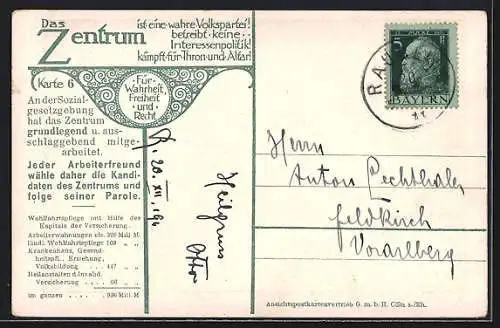 Das
Zentrum
ist eine wahre Volkspartei!
betreibt keine
Interessenpolitik!
kämpft für Thron und Altar!
Karte 6
Für
Wahrheit,
Freiheit
und
Recht
An der Sozial-
gesetzgebung
hat das Zentrum
grundlegend u. aus-
schlaggebend mitge-
arbeitet.
Jeder Arbeiterfreund
wähle daher die Kandi-
daten des Zentrums und
folge seiner Parole.
Wohlfahrtspflege mit Hilfe des
Kapitals der Versicherung.
Arbeiterwohnungen etc. 320 Mill M.
Ländl. Wohlfahrtspflege 103 „ „
Krankenhaus, Gesund-
heitspfl., Erziehung,
Volksbildung . . 447 „ „
Versicherung
im ganzen . . 936 Mill. M
5
BAYERN
Heilgruss
Otto
Herrn
Anton Pechthaler
Feldkirch
Vorarlberg
Ansichtspostkartenvertrieb G. m. b. H. Cöln a./Rh.